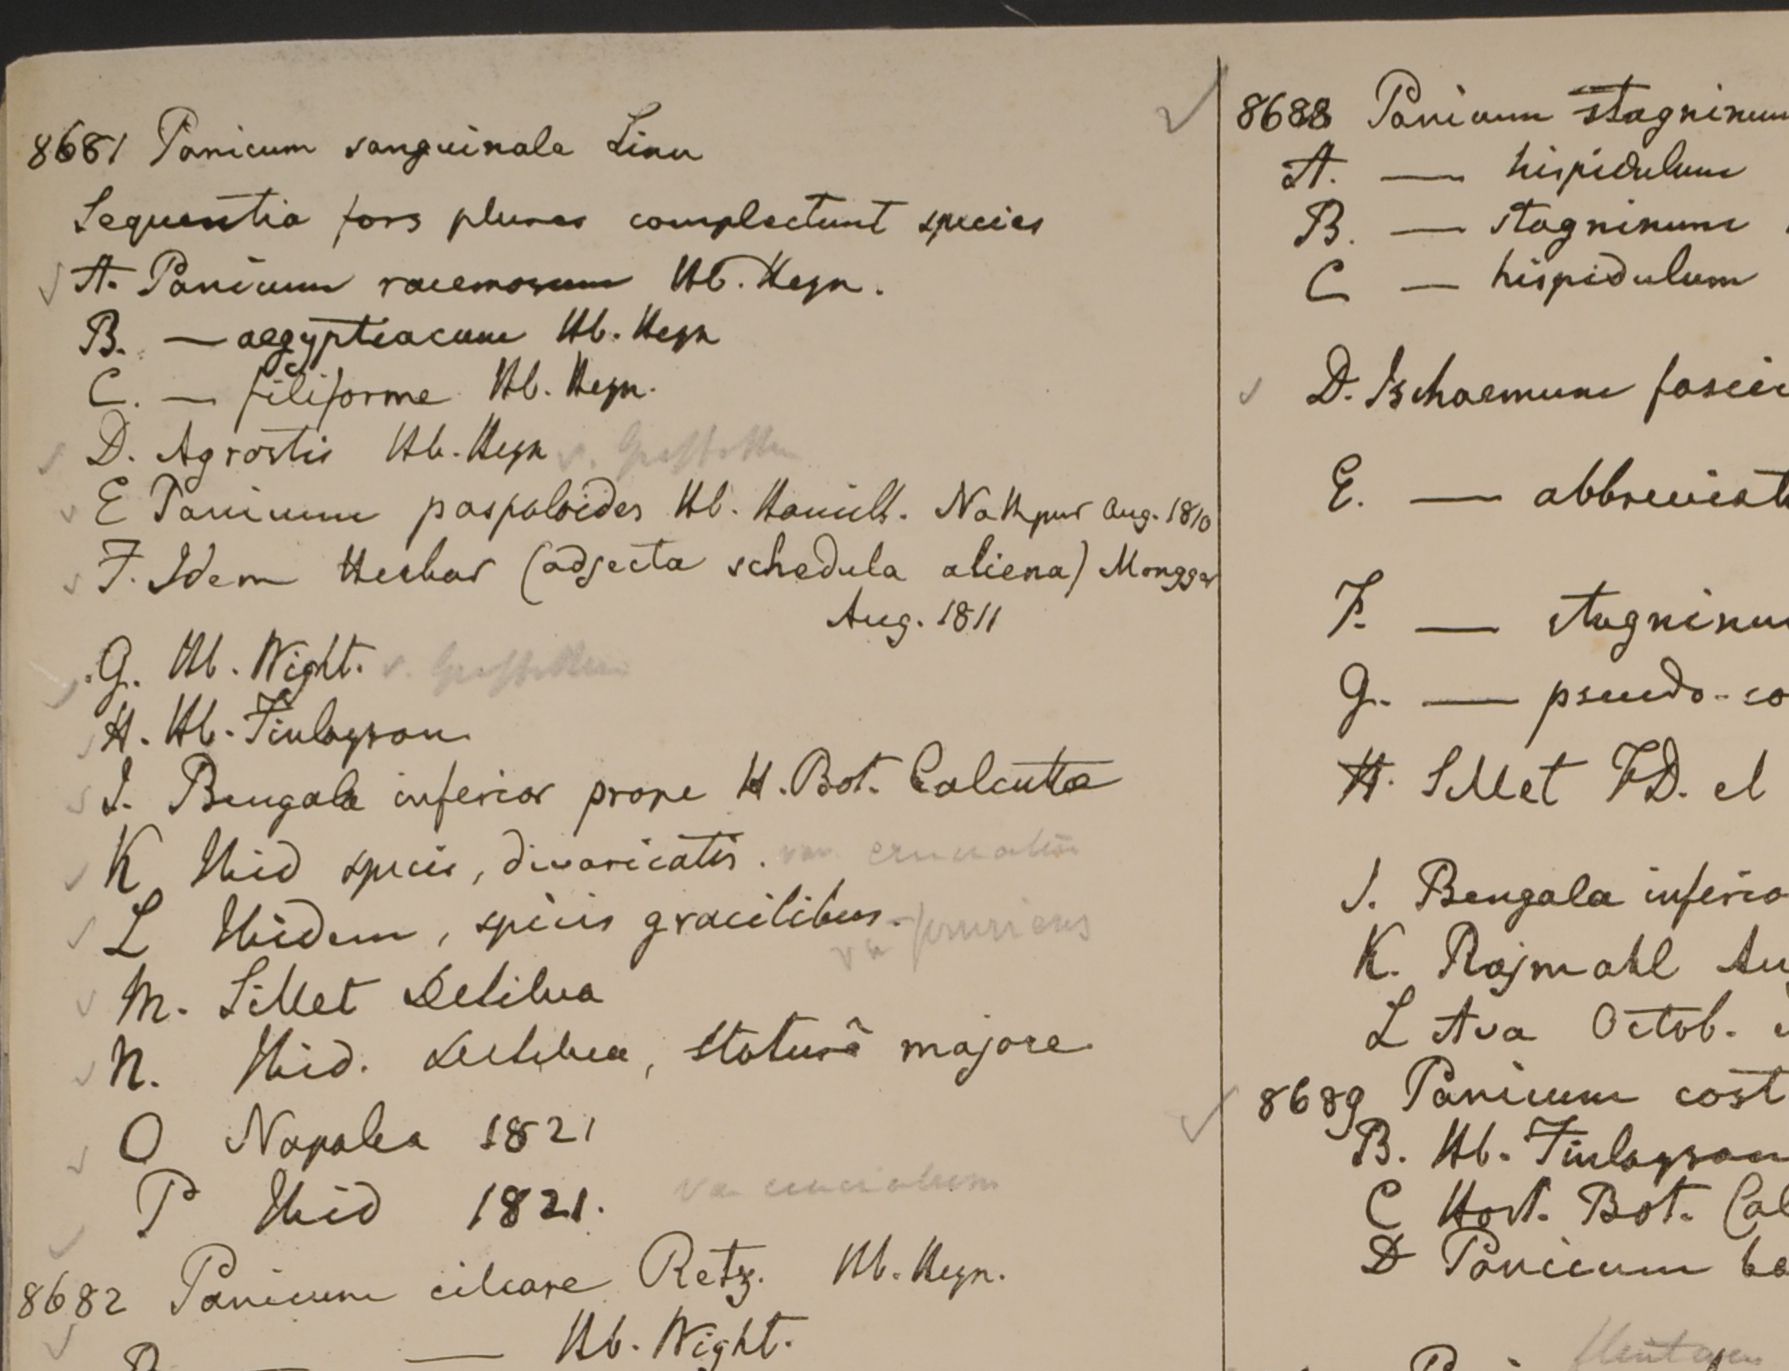 8681 Panicum sanguinale Linn
Sequentia fors plures complectunt species
A. Panicum racemosum Hb. Heyn.
B. — aegyptiacum Hb. Heyn
C. — filiforme Hb. Heyn.
D. Agrostis Hb. Heyn
E Panicum paspaloides Hb. Hamilt. Nathpur Aug. 1810
F. Idem Herbar (adjecta schedula aliena) Mongger
Aug. 1811
G. Hb. Wight.
H. Hb. Finlayson
I. Bengala inferior prope H. Bot. Calcutta
K Ibid spicis, divaricatis. var. cruciatum
L Ibidem, spicis gracilibus. pruriens
M. Sillet
N. Ibid. staturâ majore
O Napalia 1821
P Ibid 1821. var cruciatum
8682 Panicum ciliare Retz. Hb. Heyn.
— Hb. Wight.
8688 Panicum stagninum
A. — hispidulum
B. — stagninum
C — hispidulum
D. Ischaemum
E. —
F. — stagninum
G. — pseudo-co
H. Sillet F.D. el
I. Bengala inferio
K. Rajmahl Au
L Ava Octob.
8689 Panicum cost
B. Hb. Finlayson
C Hort. Bot. Cal
D Panicum